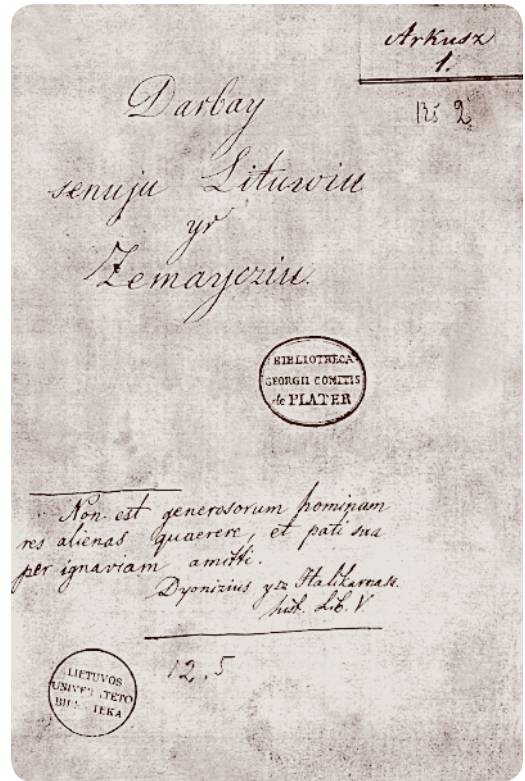 Arkusz
1.
Darbay
senuju Lituwiu
yr
Zemaycziu.
BIBLIOTHECA
GEORGII COMITIS
de PLATER
Non est generosorum hominum
res alienas quaerere, et pati sua
per ignaviam amitti.
Dyonizius ysz Halikarnass.
hist. Lib. V
12.5
LIETUVOS
UNIVERSITETO
BIBLIOTEKA